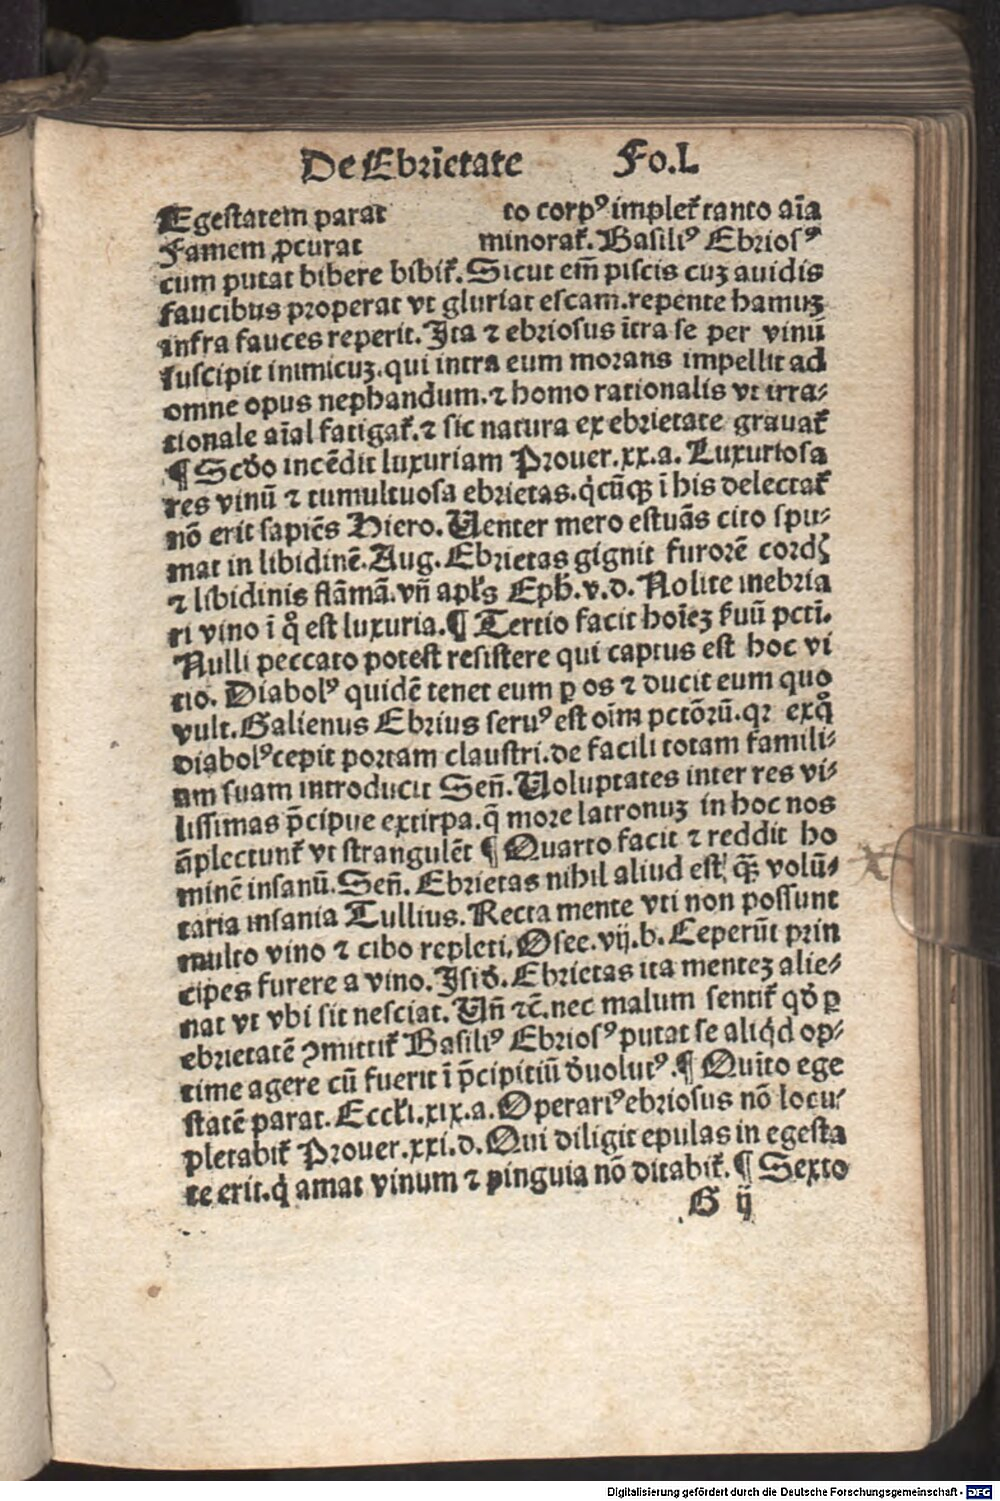 De Ebrietate Fo.L
Egestatem parat to corpꝰ impletᷣ tanto aīa
Famem ꝓcurat minoratᷣ. Basiliꝰ Ebriosꝰ
cum putat bibere bibitᷣ. Sicut em̄ piscis cuꝫ auidis
faucibus properat vt glutiat escam. repente hamuꝫ
infra fauces reperit. Ita ⁊ ebriosus ītra se per vinū
suscipit inimicuꝫ. qui intra eum morans impellit ad
omne opus nephandum. ⁊ homo rationalis vt irra-
tionale aīal fatigatᷣ. ⁊ sic natura ex ebrietate grauatᷣ
¶ Scd̓o incēdit luxuriam Prouer. xx. a. Luxuriosa
res vinū ⁊ tumultuosa ebrietas. q̇cūqꝫ ī his delectatᷣ
nō erit sapiēs Hiero. Uenter mero estuās cito spu-
mat in libidinē. Aug. Ebrietas gignit furorē cordꝭ
⁊ libidinis flāmā. vñ apl̓s Eph̓. v. d. Nolite inebria
ri vino ī qͦ est luxuria. ¶ Tertio facit hoīeꝫ s̓uū pctī.
Nulli peccato potest resistere qui captus est hoc vi
tio. Diabolꝰ quidē tenet eum ꝑ os ⁊ ducit eum quo
vult. Galienus Ebrius seruꝰ est oīm pctōrū. qꝛ ex qͦ
diabolꝰ cepit portam claustri. de facili totam famili-
am suam introducit Señ. Uoluptates inter res vi-
lissimas p̄cipue extirpa. q̄ more latronuꝫ in hoc nos
āplectuntᷣ vt strangulēt ¶ Quarto facit ⁊ reddit ho
minē insanū. Señ. Ebrietas nihil aliud est qꝫ̄ volū-
taria insania Tullius. Recta mente vti non possunt
multo vino ⁊ cibo repleti. Osee. vij. b. Ceperūt prin
cipes furere a vino. Isid̓. Ebrietas ita menteꝫ alie-
nat vt vbi sit nesciat. Uñ ⁊c̄. nec malum sentitᷣ qd̓ ꝑ
ebrietatē ꝯmittitᷣ Basiliꝰ Ebriosꝰ putat se aliq̇d op-
time agere cū fuerit ī p̄cipitiū d̓uolutꝰ. ¶ Quīto ege
statē parat. Eccl̓i. xix. a. Operariꝰ ebriosus nō locu-
pletabitᷣ Prouer. xxi. d. Qui diligit epulas in egesta
te erit. q̇ amat vinum ⁊ pinguia nō ditabitᷣ. ¶ Sexto
G ij
x
Digitalisierung gefördert durch die Deutsche Forschungsgemeinschaft - DFG